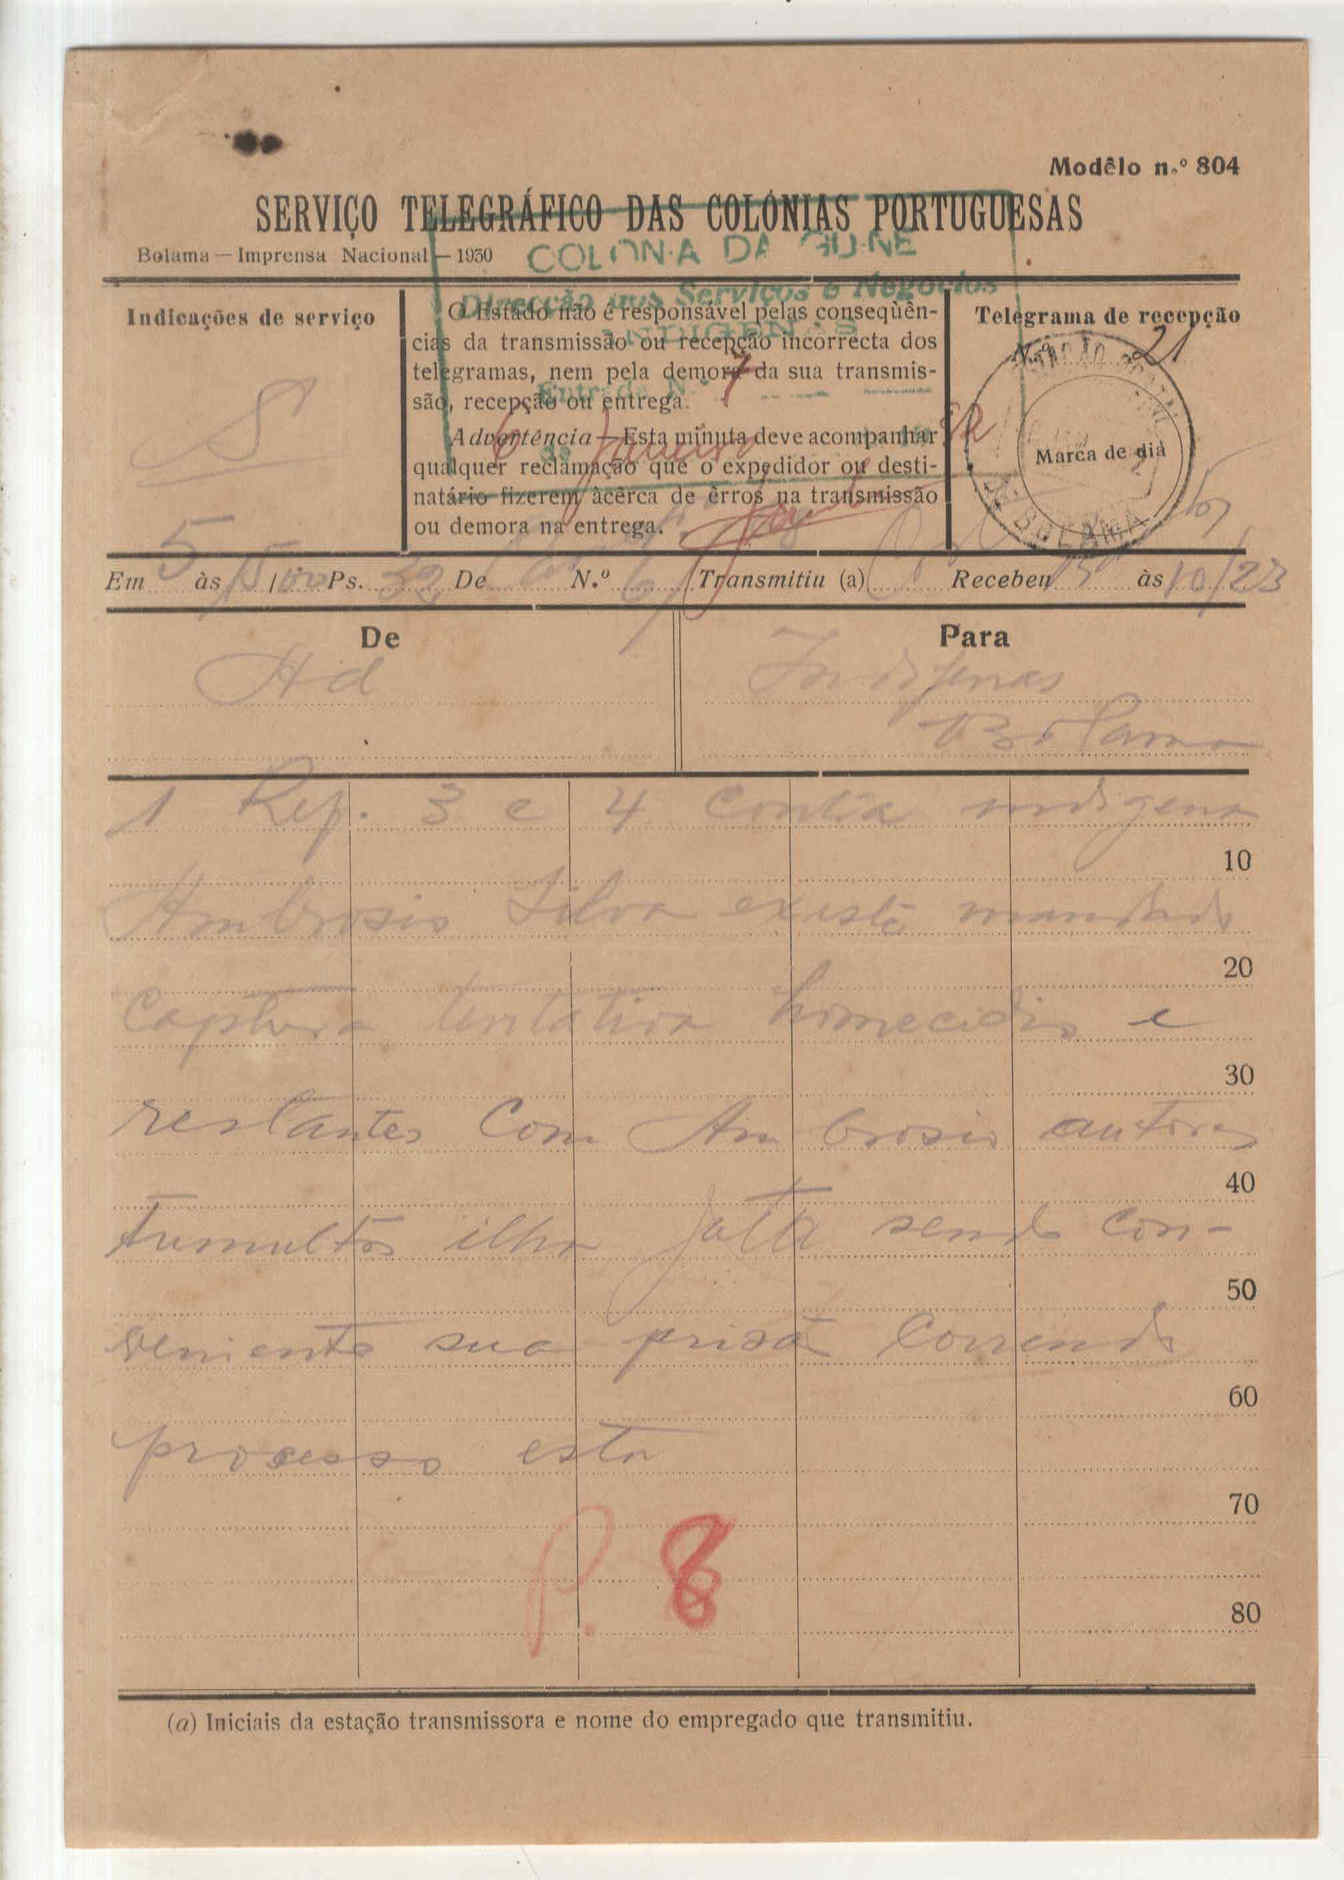 Modêlo n.º 804
SERVIÇO TELEGRÁFICO DAS COLÓNIAS PORTUGUESAS
Bolama — Imprensa Nacional — 1930
COLONIA DA GUINE
Direcção dos Serviços e Negocios
INDIGENAS
Entrada N.º 7
6 de Janeiro
Indicações de serviço
S
O Estado não é responsável pelas conseqüên-
cias da transmissão ou recepção incorrecta dos
telegramas, nem pela demora da sua transmis-
são, recepção ou entrega.
Advertência — Esta minuta deve acompanhar
qualquer reclamação que o expedidor ou desti-
natário fizerem àcêrca de êrros na transmissão
ou demora na entrega.
Telegrama de recepção
21
Marca de dia
BOLAMA
Em 5 às 15/00 Ps. 32 De N.º 6 Transmitiu (a) Recebeu às 10/23
De
Ad
Para
Indigenas
Bolama
1 Ref. 3 e 4 contra indigena
10
Ambrosio Silva existe mandado
20
captura tentativa homecidio e
30
restantes com Ambrosio autores
40
tumultos ilha Jatta sendo con-
50
veniente sua prisão correndo
60
processo esta
70
P. 8
80
(a) Iniciais da estação transmissora e nome do empregado que transmitiu.